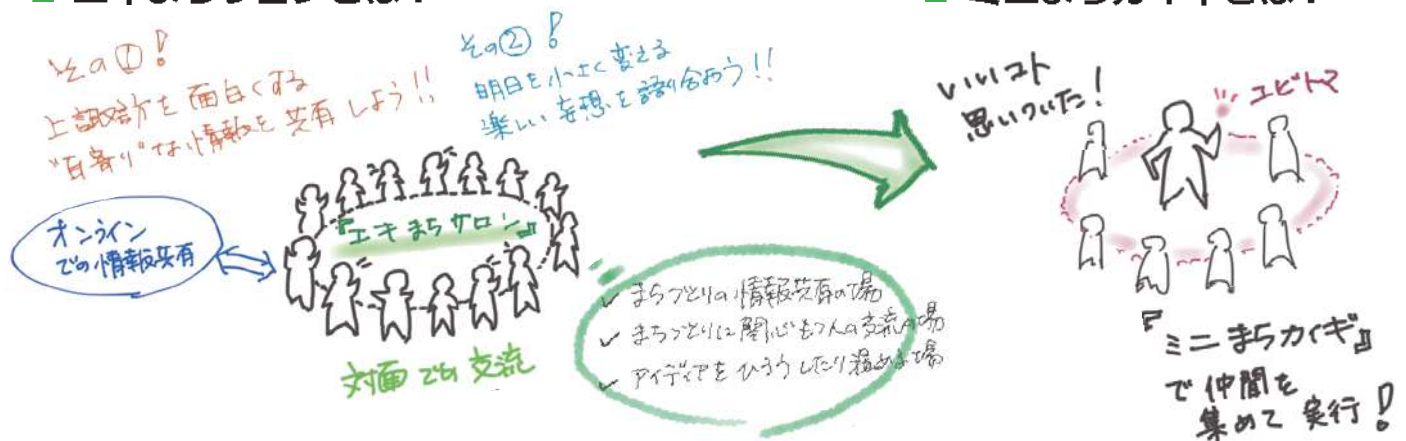 その①!
上諏訪を面白くする
"耳寄り"な情報を共有しよう!!
その②!
明日を小さく変える
楽しい妄想を語り合おう!!
オンライン
での情報共有
『エキまちサロン』
対面での交流
✓ まちづくりの情報共有の場
✓ まちづくりに関心もつ人の交流の場
✓ アイディアをひろうしたり温める場
いいコト
思いついた!
ユビトマ
『ミニまちカイギ』
で仲間を
集めて実行!